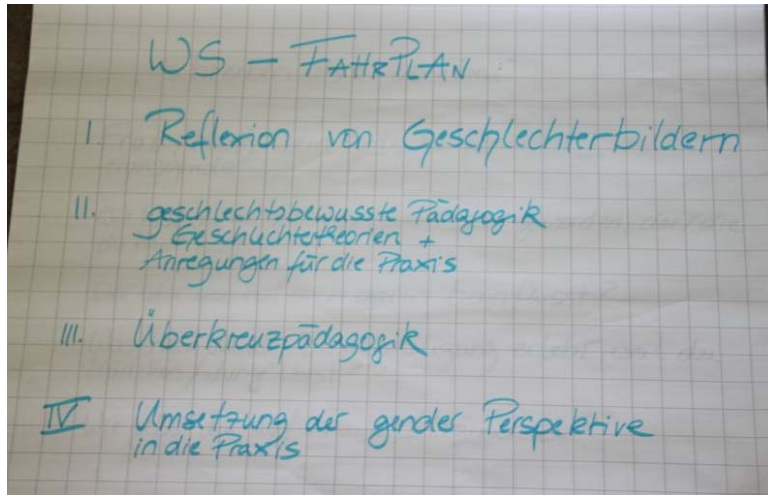 WS - FAHRPLAN
I. Reflexion von Geschlechterbildern
II. geschlechtsbewusste Pädagogik
Geschlechtertheorien +
Anregungen für die Praxis
III. Überkreuzpädagogik
IV Umsetzung der gender Perspektive
in die Praxis